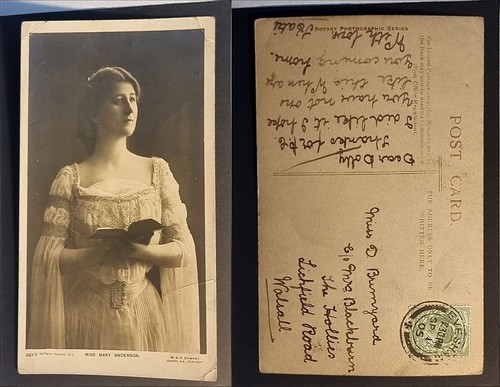 MISS MARY ANDERSON.
W. & D. DOWNEY
LONDON, S.W., COPYRIGHT
ROTARY PHOTOGRAPHIC SERIES
POST CARD.
THE ADDRESS ONLY TO BE
WRITTEN HERE.
Dear Dolly
Thanks for P.C.
I did like it I hope
you have not one
like this. When are
you coming home.
With love
Miss D Bunyard
C/o Mrs Blackburn
The Hollies
Lichfield Road
Walsall
SP
05